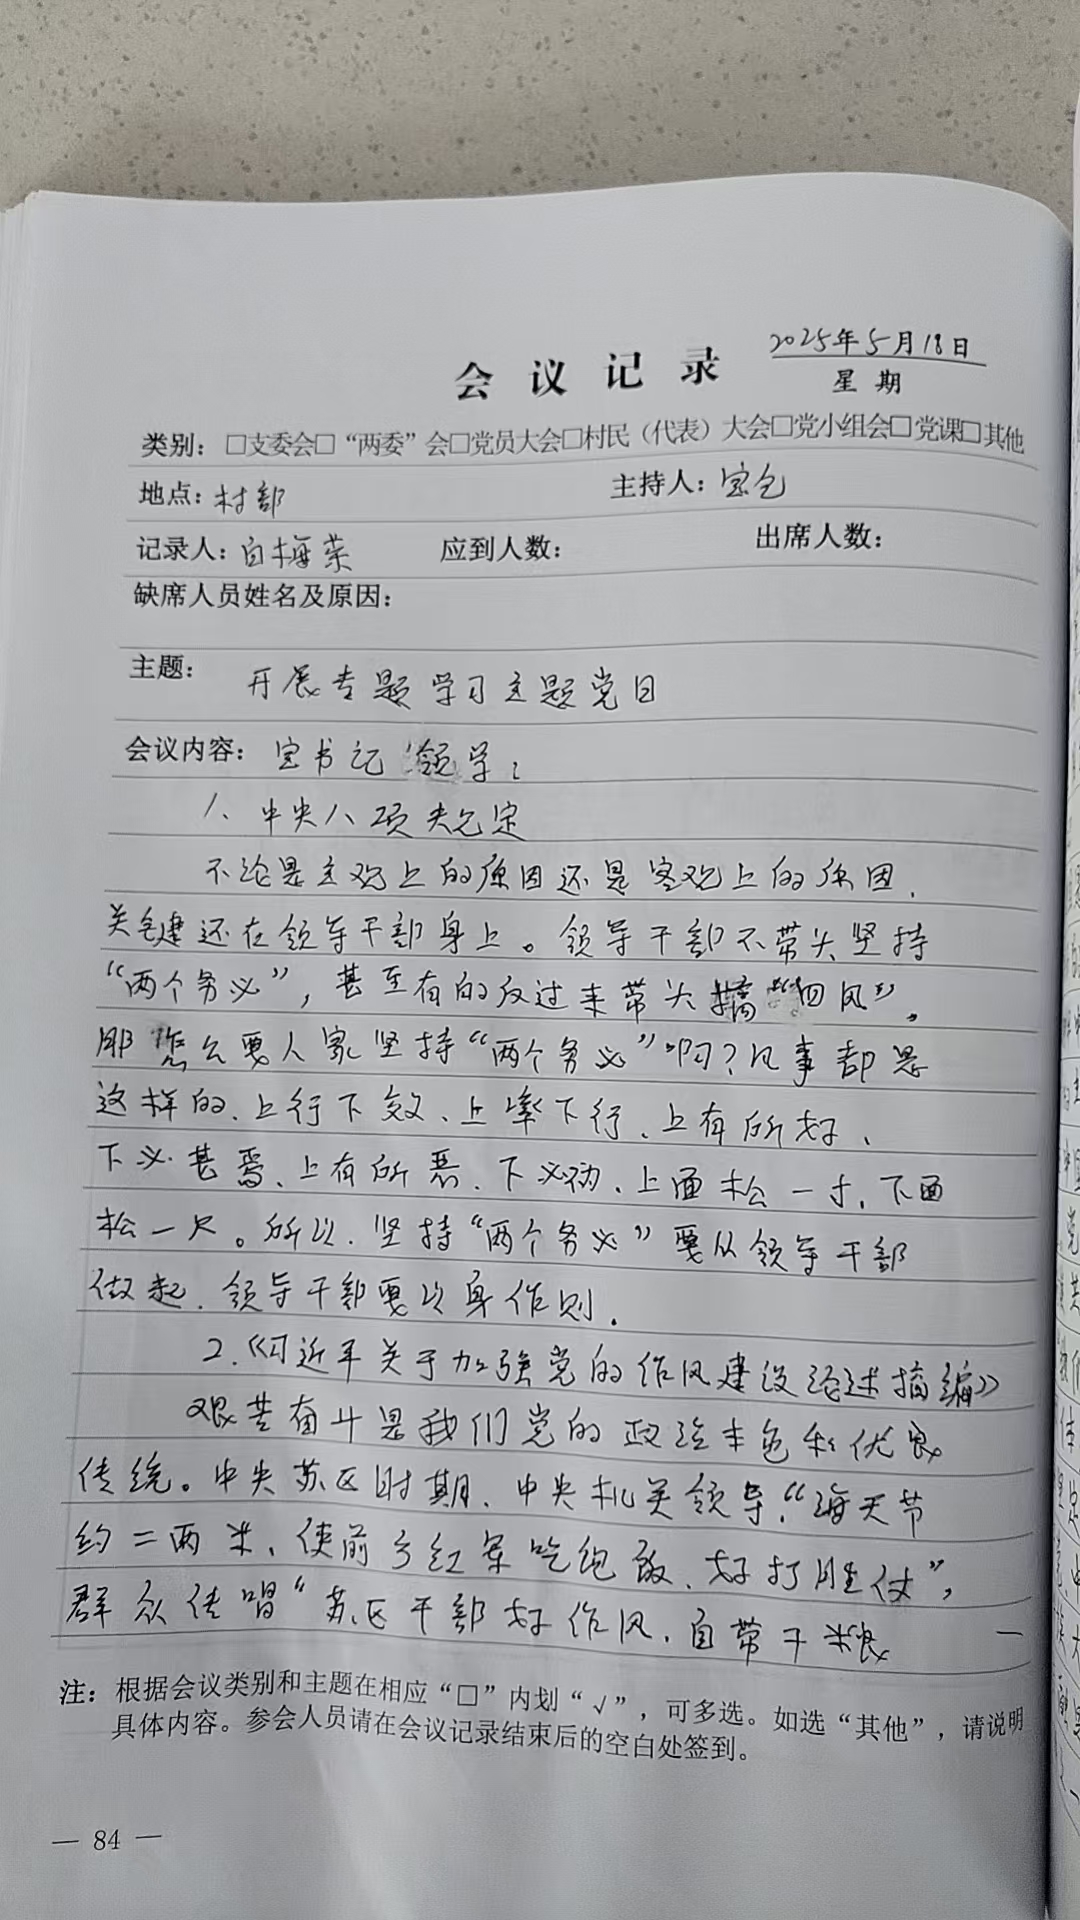 会议记录
2025年5月18日
星期
类别：□支委会□“两委”会□党员大会□村民（代表）大会□党小组会□党课□其他
地点：村部 主持人：宝仓
记录人：白梅荣 应到人数： 出席人数：
缺席人员姓名及原因：
主题： 开展专题学习主题党日
会议内容：宝书记领学：
1、中央八项规定
不论是主观上的原因还是客观上的原因，
关键还在领导干部身上。领导干部不带头坚持
“两个务必”，甚至有的反过来带头搞“四风”，
那怎么要人家坚持“两个务必”啊？凡事都是
这样的、上行下效、上率下行、上有所好、
下必甚焉、上有所恶、下必、上面松一寸，下面
松一尺。所以，坚持“两个务必”要从领导干部
做起，领导干部要以身作则．
2.《习近平关于加强党的作风建设论述摘编》
艰苦奋斗是我们党的政治本色和优良
传统。中央苏区时期、中央机关领导，“每天节
约二两米、使前方红军吃饱饭、好打胜仗”，
群众传唱“苏区干部好作风，自带干粮
注：根据会议类别和主题在相应“□”内划“√”，可多选。如选“其他”，请说明
具体内容。参会人员请在会议记录结束后的空白处签到。
— 84 —